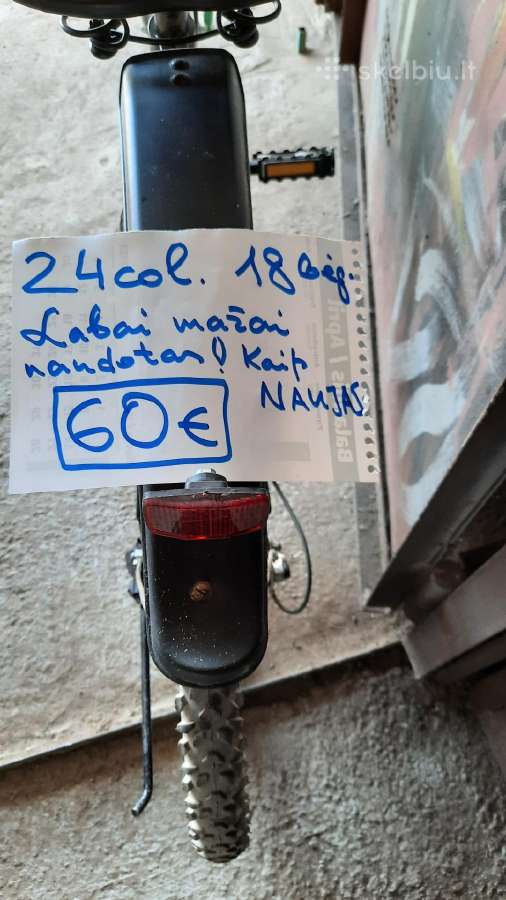 skelbiu.lt
24 col. 18 bėg.
Labai mažai
naudotas! Kaip
NAUJAS
60 €